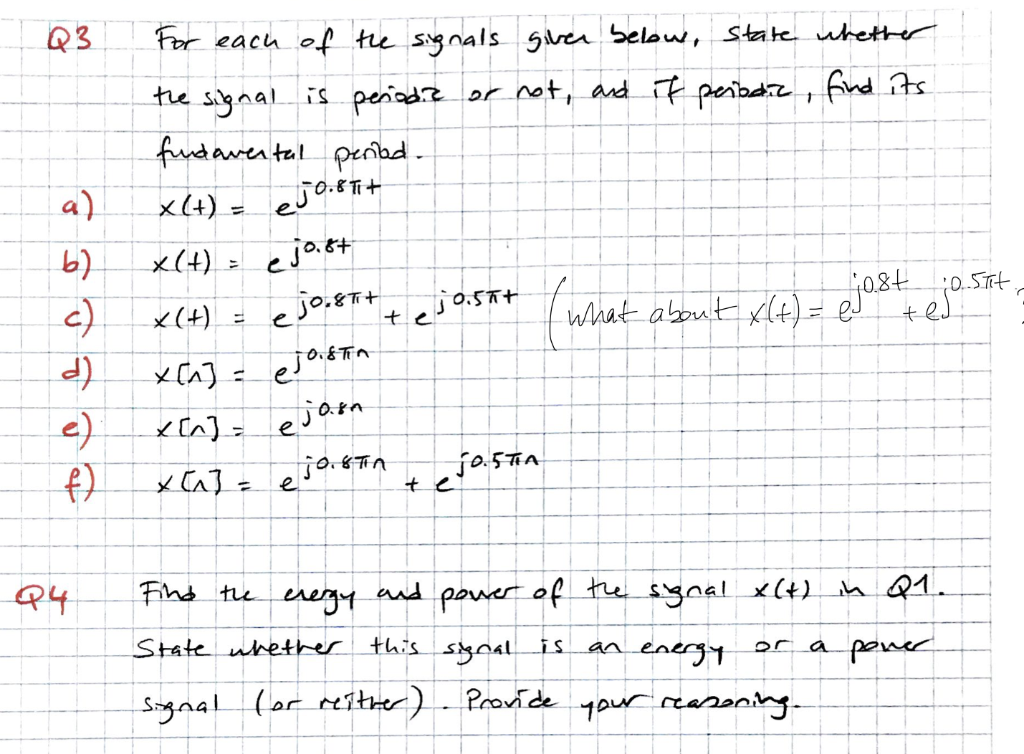 Q3 For each of the signals given below, state whether
the signal is periodic or not, and if periodic, find its
fundamental period.
a) x(t) = e^{j0.8πt}
b) x(t) = e^{j0.8t}
c) x(t) = e^{j0.8πt} + e^{j0.5πt} (what about x(t) = e^{j0.8t} + e^{j0.5πt} ?
d) x[n] = e^{j0.8πn}
e) x[n] = e^{j0.8n}
f) x[n] = e^{j0.8πn} + e^{j0.5πn}
Q4 Find the energy and power of the signal x(t) in Q1.
State whether this signal is an energy or a power
signal (or neither). Provide your reasoning.